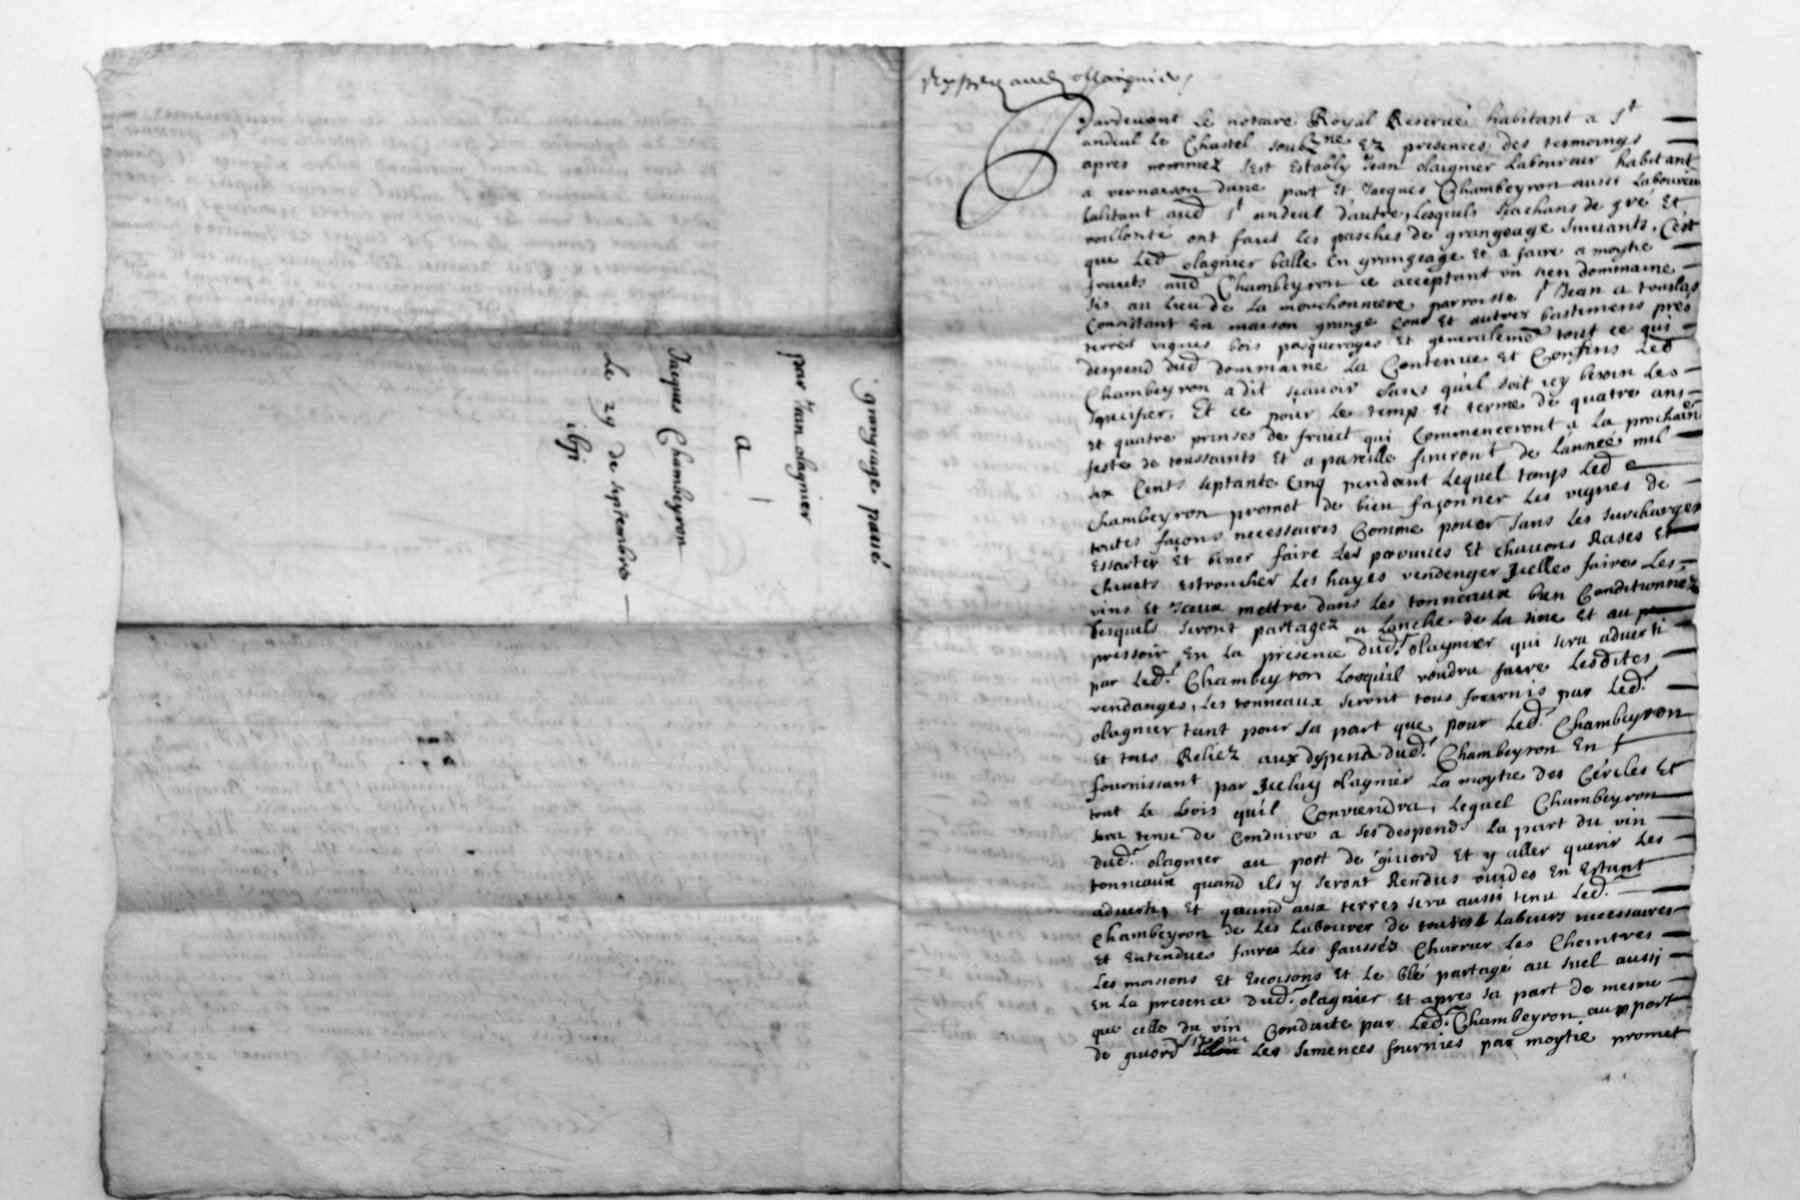 grangeage passé
par Jean olagnier
a
Jacques Chambeyron
Le 29 de septembre
Pardevant Le notaire Royal Reservé habitant a St
andeul le Chastel soubzne Ez presences des tesmoings
apres nommez sest Estably Jean olaignier Laboureur habitant
a vernaison dune part Et Jacques Chambeyron aussi Laboureur
habitant aud St andeul dautre, Lesquels de gre Et
vollonté ont faict les pasches de grangeage suivants, C'est
que Led olagnier baille En grangeage Et a faire a moytie
fruits aud Chambeyron ce acceptant un sien dommaine
sis au Lieu de La mouchonniere parroisse St Jean a touslas
Consistant En maison grange Cour Et autres bastimens prés
terres vignes bois pasquerages Et generalemt tout ce qui
despend dud dommaine La Contenue Et Confins Led
Chambeyron a dit scavoir sans qu'il soit icy besoin Les
specifier, Et ce pour Le temps Et terme de quatre ans
Et quatre prinses de fruict qui Commenceront a La prochaine
feste de toussaints Et a pareille finiront de L'année mil
six Cents septante Cinq pendant Lequel temps Led
Chambeyron promet de bien façonner Les vignes de
toutes façons necessaires Comme pouer sans Les surcharger
Essarter Et biner faire Les prouuies Et chauons Rases Et
Chevets Estroncher Les hayes vendenger Icelles faires Les
vins Et Iceux mettre dans Les tonneaux bien Conditionnez
Lesquels seront partagez a Lanche de La tine Et au
pressoir En La presence dud. olagnier qui sera adverti
par Led. Chambeyron Losqu'il voudra faire Lesdites
vendanges, Les tonneaux seront tous fournis par Led.
olagnier tant pour sa part que pour Led. Chambeyron
Et tous Reliez aux despends dud. Chambeyron En
fournissant par Iceluy olagnier La moytie des Cercles Et
tout Le bois qu'il Conviendra, Lequel Chambeyron
sera tenu de Conduire a ses despends La part du vin
dud. olagnier au port de givord Et y aller querir Les
tonneaux quand ils y seront Rendus vuides En Estant
adverty, Et quand aux terres sera aussi tenu Led.
Chambeyron de Les Labourer de toutes Labeurs necessaires
Et Entendues faires Les faussés Charrier Les Cheintres
Les moissons Et Escoisons Et Le blé partagé au suel aussi
En La presence dud. olagnier Et apres sa part de mesme
que celle du vin Conduite par Led. Chambeyron au pport
de givord Les semences fournies par moytie promet